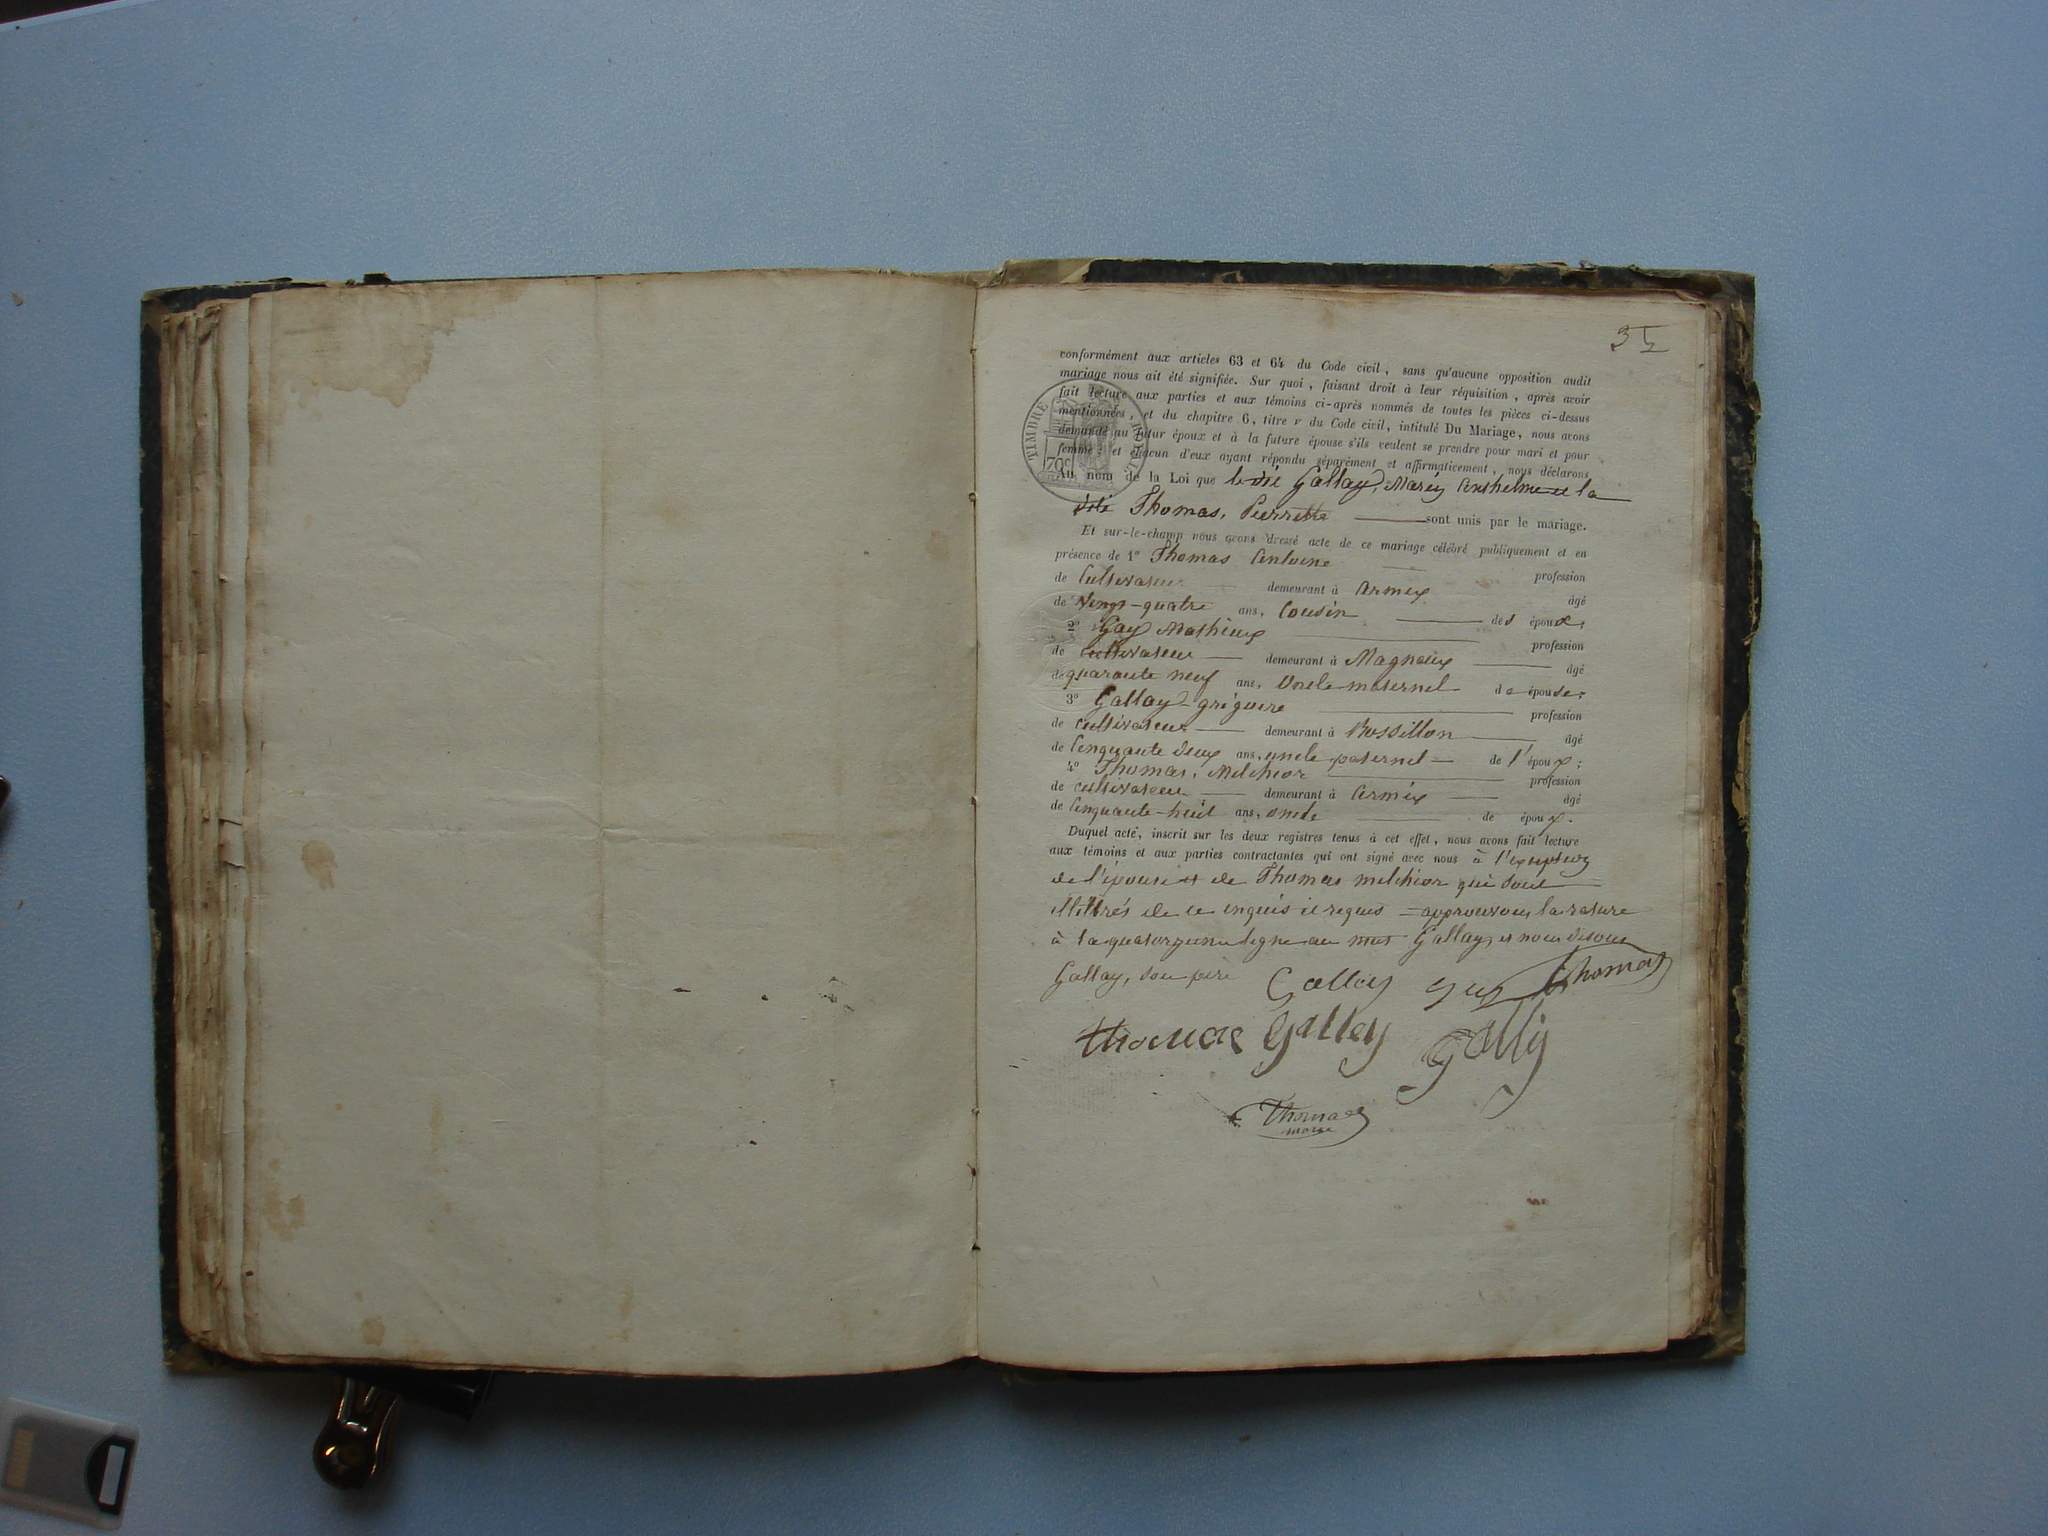 35
conformément aux articles 63 et 64 du Code civil, sans qu'aucune opposition audit
mariage nous ait été signifiée. Sur quoi, faisant droit à leur réquisition, après avoir
fait lecture aux parties et aux témoins ci-après nommés de toutes les pièces ci-dessus
mentionnées, et du chapitre 6, titre v du Code civil, intitulé Du Mariage, nous avons
demandé au futur époux et à la future épouse s'ils veulent se prendre pour mari et pour
femme; et chacun d'eux ayant répondu séparément et affirmativement, nous déclarons
TIMBRE ROYAL
70c
Au nom de la Loi que le dit Gallay, Marin Anthelme et la
dite Thomas, Pierrette sont unis par le mariage.
Et sur-le-champ nous avons dressé acte de ce mariage célébré publiquement et en
présence de 1º Thomas Antoine profession
de Cultivateur demeurant à Armix âgé
de Vingt-quatre ans, Cousin des époux;
2º Gay Mathieux profession
de cultivateur demeurant à Magnieux âgé
de quarante neuf ans, Oncle maternel de épouse;
3º Gallay grégoire profession
de cultivateur demeurant à Rossillon âgé
de Cinquante deux ans, oncle paternel de l'époux;
4º Thomas, Melchior profession
de cultivateur demeurant à Armix âgé
de Cinquante-huit ans, oncle de époux.
Duquel acte, inscrit sur les deux registres tenus à cet effet, nous avons fait lecture
aux témoins et aux parties contractantes qui ont signé avec nous à l'exception
de l'épouse et de Thomas melchior qui sont
illettrés de ce enquis et requis = approuvons la rature
à la quatorzieme ligne au mot Gallay, et nous disons
Gallay, son père Gallay Gay Thomas
thomas Gallay Gally
Thomas
maire